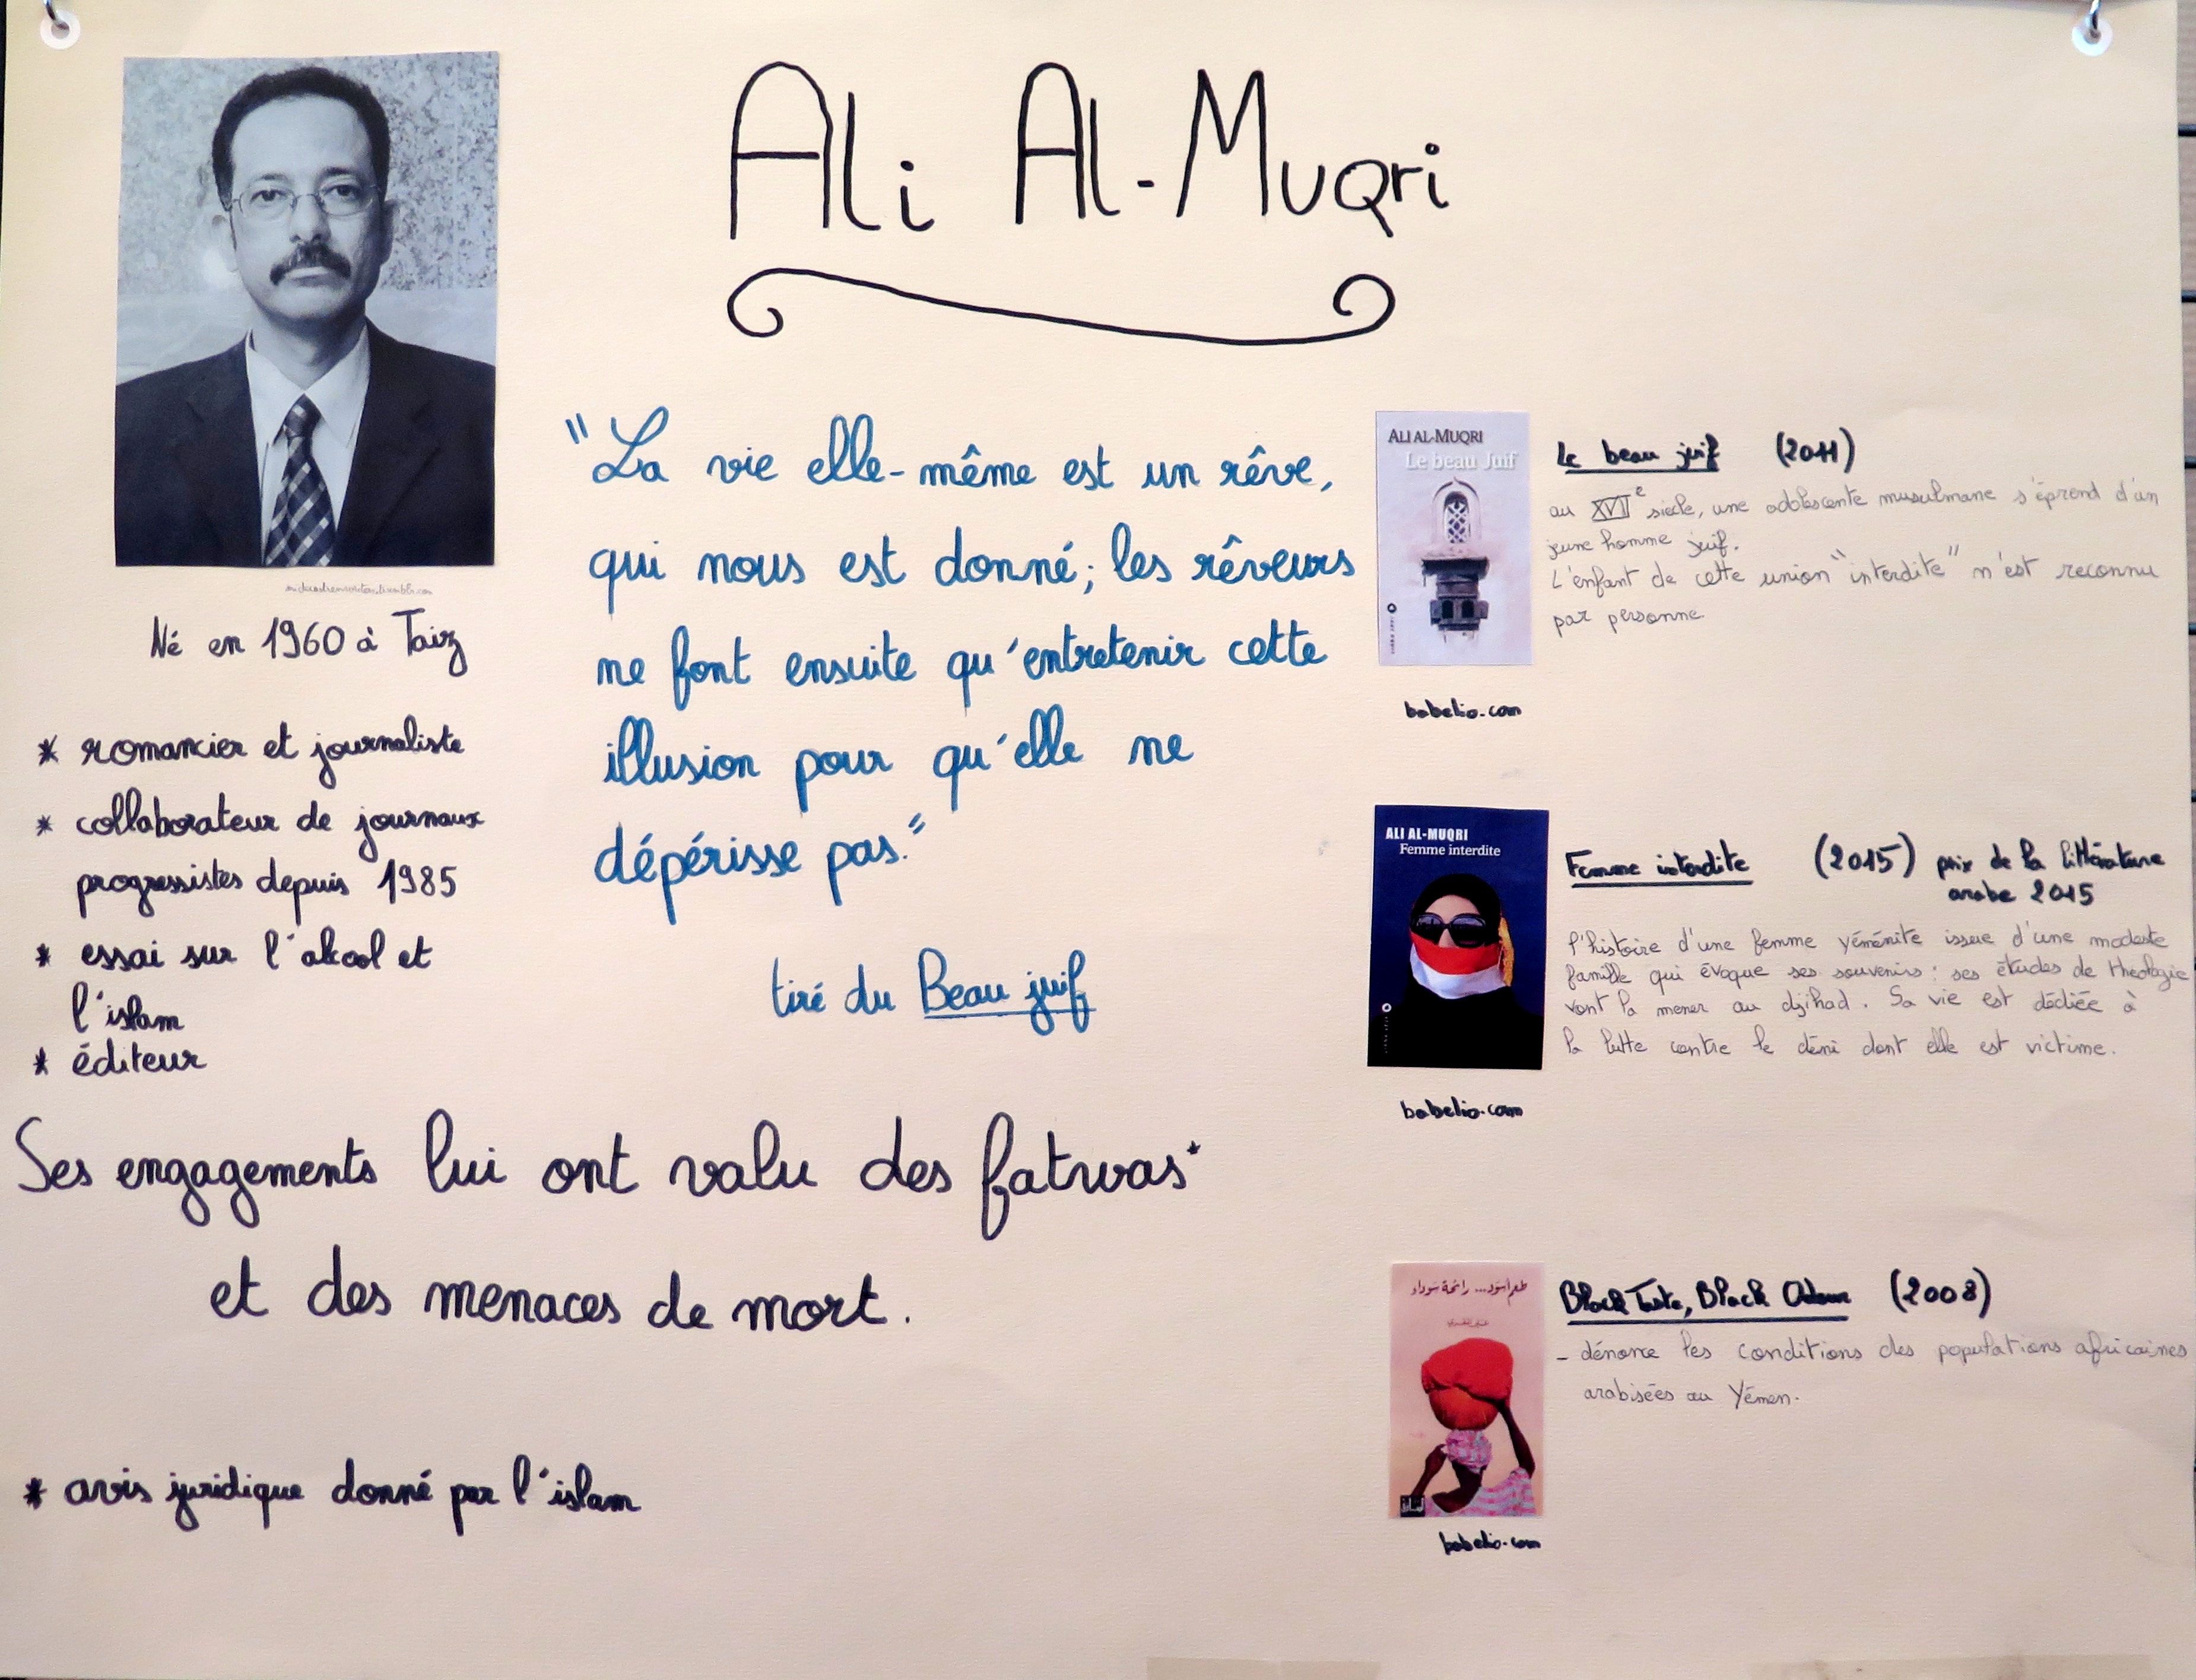 Ali Al-Muqri
Né en 1960 à Taiz
* romancier et journaliste
* collaborateur de journaux
progressistes depuis 1985
* essai sur l'alcool et
l'islam
* éditeur
"La vie elle-même est un rêve,
qui nous est donné; les rêveurs
ne font ensuite qu'entretenir cette
illusion pour qu'elle ne
dépérisse pas."
tiré du Beau juif
Ses engagements lui ont valu des fatwas*
et des menaces de mort.
* avis juridique donné par l'islam
ALI AL-MUQRI
Le beau Juif
babelio.com
Le beau juif (2011)
au XVIIe siècle, une adolescente musulmane s'éprend d'un
jeune homme juif.
L'enfant de cette union "interdite" n'est reconnu
par personne
ALI AL-MUQRI
Femme interdite
babelio.com
Femme interdite (2015) prix de la littérature
arabe 2015
l'histoire d'une femme yéménite issue d'une modeste
famille qui évoque ses souvenirs : ses études de théologie
vont la mener au djihad. Sa vie est dédiée à
la lutte contre le déni dont elle est victime.
طعم أسود... رائحة سوداء
علي المقري
babelio.com
Black Taste, Black Odour (2008)
- dénonce les conditions des populations africaines
arabisées au Yémen.